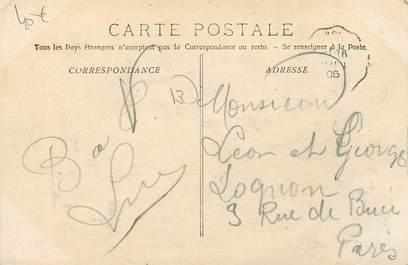 40€
CARTE POSTALE
Tous les Pays étrangers n'acceptent pas la Correspondance au recto. - Se renseigner à la Poste.
CORRESPONDANCE
ADRESSE
06
13
Monsieur
Leon et George
Lognon
3 Rue de Buci
Paris